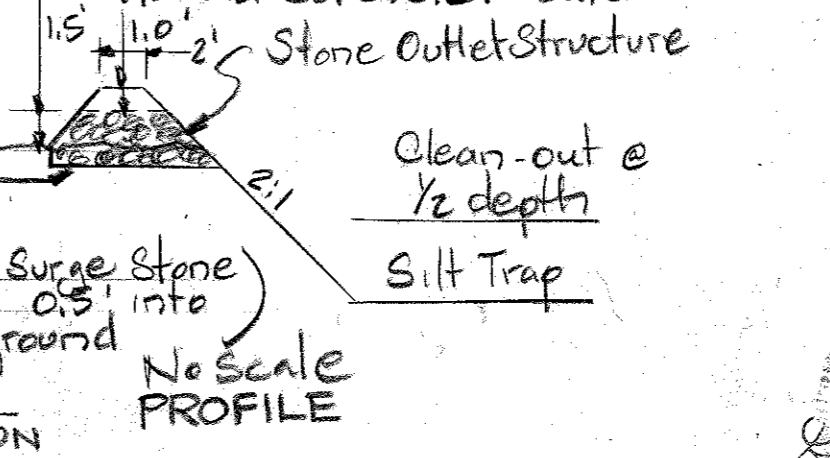 1.5' 1.0' 2'
Stone Outlet Structure
Clean-out @
1/2 depth
2:1
Silt Trap
Surge Stone
0.5' into
round
No Scale
PROFILE
ON